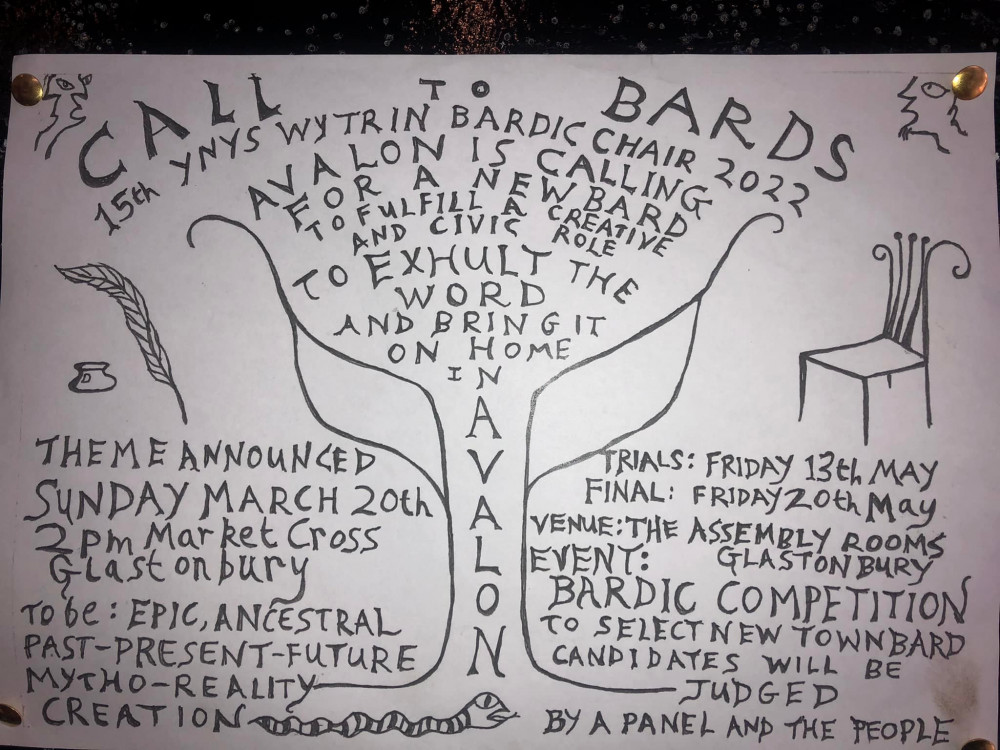 CALL TO BARDS
15th YNYS WYTRIN BARDIC CHAIR 2022
AVALON IS CALLING
FOR A NEW BARD
TO FULFILL A CREATIVE
AND CIVIC ROLE
TO EXHULT THE
WORD
AND BRING IT
ON HOME
IN
AVALON
THEME ANNOUNCED
SUNDAY MARCH 20th
2pm Market Cross
Glastonbury
To be: EPIC, ANCESTRAL
PAST-PRESENT-FUTURE
MYTHO-REALITY
CREATION
TRIALS: FRIDAY 13th MAY
FINAL: FRIDAY 20th May
VENUE: THE ASSEMBLY ROOMS
GLASTONBURY
EVENT:
BARDIC COMPETITION
TO SELECT NEW TOWN BARD
CANDIDATES WILL BE
JUDGED
BY A PANEL AND THE PEOPLE